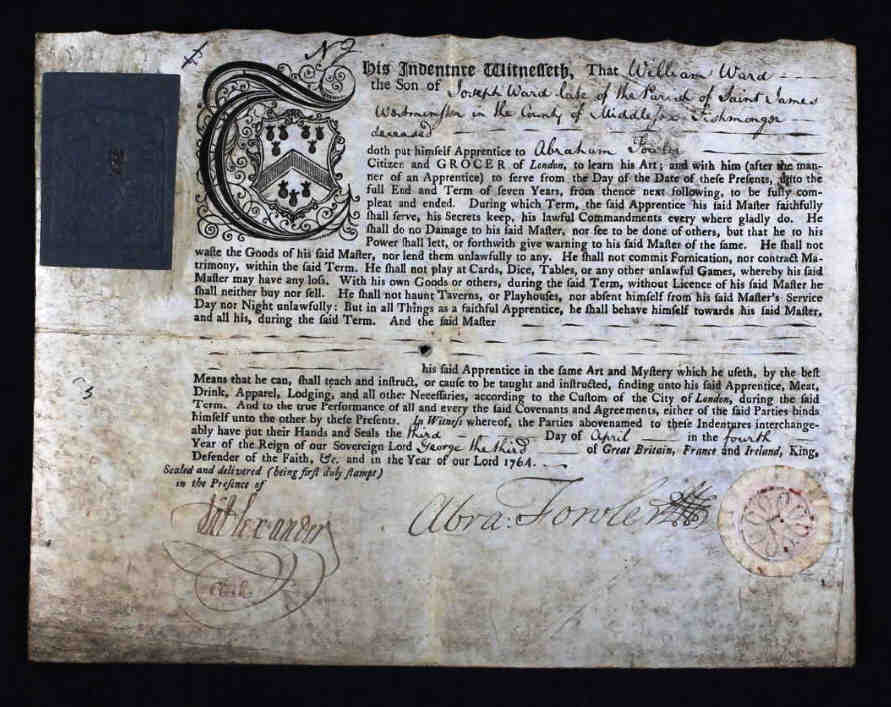 No
This Indenture Witnesseth, That William Ward
the Son of Joseph Ward late of the Parish of Saint James
Westminster in the County of Middlesex Fishmonger
deceased
doth put himself Apprentice to Abraham Fowler
Citizen and GROCER of London, to learn his Art; and with him (after the man-
ner of an Apprentice) to serve from the Day of the Date of these Presents, unto the
full End and Term of seven Years, from thence next following, to be fully com-
pleat and ended. During which Term, the said Apprentice his said Master faithfully
shall serve, his Secrets keep, his lawful Commandments every where gladly do. He
shall do no Damage to his said Master, nor see to be done of others, but that he to his
Power shall lett, or forthwith give warning to his said Master of the same. He shall not
waste the Goods of his said Master, nor lend them unlawfully to any. He shall not commit Fornication, nor contract Ma-
trimony, within the said Term. He shall not play at Cards, Dice, Tables, or any other unlawful Games, whereby his said
Master may have any loss. With his own Goods or others, during the said Term, without Licence of his said Master he
shall neither buy nor sell. He shall not haunt Taverns, or Playhouses, nor absent himself from his said Master's Service
Day nor Night unlawfully: But in all Things as a faithful Apprentice, he shall behave himself towards his said Master,
and all his, during the said Term. And the said Master
his said Apprentice in the same Art and Mystery which he useth, by the best
Means that he can, shall teach and instruct, or cause to be taught and instructed, finding unto his said Apprentice, Meat,
Drink, Apparel, Lodging, and all other Necessaries, according to the Custom of the City of London, during the said
Term. And to the true Performance of all and every the said Covenants and Agreements, either of the said Parties binds
himself unto the other by these Presents. In Witness whereof, the Parties abovenamed to these Indentures interchange-
ably have put their Hands and Seals the third Day of April in the fourth
Year of the Reign of our Sovereign Lord George the third of Great Britain, France and Ireland, King,
Defender of the Faith, &c. and in the Year of our Lord 1764.
Sealed and delivered (being first duly stampt)
in the Presence of
Alexander
Clerk
Abra: Fowler
3